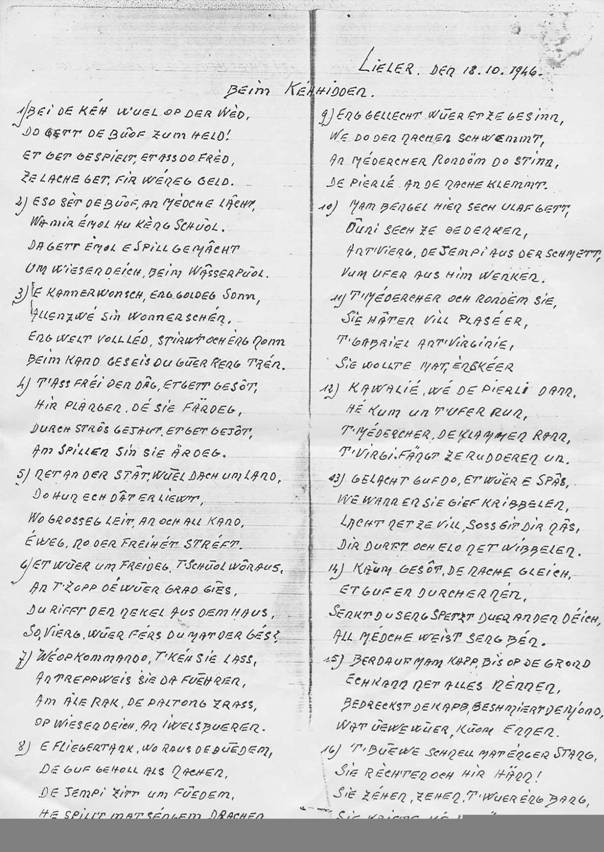 LIELER. DEN 18.10.1946.
BEIM KÉHHIDDEN.
1) BEI DE KÉH WUEL OP DER WÈD,
DO GETT DE BÛOF ZUM HELD!
ET GET GESPIELT, ET ASS DO FRÈD,
ZE LACHE GET, FIR WÉNEG GELD.
2) ESO SÈT DE BÛOF, AN MÈDCHE LÂCHT,
WA MIR ÉMOL HU KÈNG SCHUOL.
DA GETT ÉMOL E SPILL GEMÂCHT
UM WIESENDEICH, BEIM WÂSSERPUOL.
3) E KANNERWONSCH, ENG GOLDEG SONN,
ALLENZWÉ SIN WONNERSCHÉN.
ENG WELT VOLL LÉD, STIRWT OCH ÈNG NONN
BEIM KAND GESEIS DU GUER KENG TRÉN.
4) T'ASS FRÉI DEN DÂG, ET GETT GESÔT,
HIR PLÄNGER, DÉ SIE FÄRDEG,
DURCH STRÔS GEJAUT, ET GET GEJÔT,
AM SPILLEN SIN SIE ÄRDEG.
5) NET AN DER STÂT, WUEL DACH UM LAND,
DO HUN ECH DÂT ERLIEWT,
WO GROSSEG LEIT, AN OCH ALL KAND,
ÉWEG, NO DER FREIHÉT STRÉFT.
6) ET WUER UM FREIDEG, T'SCHUOL WÔR AUS,
AN T'ZOPP DÉ WUER GRAD GIES,
DU RIFFT DEN NEKEL AUS DEM HAUS,
SO, VIERG, WUER FÉRS DU MAT DER GÉS?
7) WÉ OP KOMMANDO, T'KÉH SIE LASS,
AN TREPPWEIS SIE DA FUEHREN,
AM ÀLE RAK, DE PALTONG ZRASS,
OP WIESENDEICH, AN IWELSBUEREN.
8) E FLIEGERTANK, WO RAUS DE BUEDEM,
DE GUF GEHOLL ALS NACHEN,
DE JEMPI ZITT UM FUEDEM,
HE SPILLT MAT SENGEM DRACHEN
9) ENG GELLECHT WUER ET ZE GESINN,
WE DO DEN NACHEN SCHWEMMT,
AN MÉDERCHER RONDÔM DO STINN,
DE PIERLÉ AN DE NACHE KLEMMT.
10) MAM BENGEL HIER SECH ULAF GETT,
OUNI SECH ZE BEDENKEN,
AN T'VIERG, DE JEMPI AUS DER SCHMETT,
VUM UFER AUS HIM WENKEN.
11) T'MÉDERCHER OCH RONDÉM SIE,
SIE HÄTEN VILL PLASÉER,
T'GABRIEL AN T'VIRGINIE,
SIE WOLLTE MAT, ÈNSKÉER
12) KAWALIÉ, WÉ DE PIERLI DANN,
HÉ KUM UN T'UFER RUN,
T'MÉDERCHER, DE KLAMMEN RANN,
T'VIRGI. FÄNGT ZE RUDDEREN UN.
13) GELACHT GUF DO, ET WUER E SPÂS,
WE WANN ER SIE GIEF KRIBBELEN,
LACHT NET ZE VILL, SOSS GIT DIR NÂS,
DIR DURFT OCH ELO NET WIBBELEN.
14) KAUM GESÔT, DE NACHE GLEICH,
ET GUF EN DURCHERNÉN,
SENKT DU SENG SPETZT DUER AN DER DÉICH,
ALL MÉDCHE WEIST SENG BÉN.
15) BERDAUF MAM KAPP, BIS OP DE GROND
ECH KANN NET ALLES NÈNNEN,
BEDRECKST DE KAPP, BESHMIERT DE MOND,
WAT UEWE WUER, KUOM ENNEN.
16) T'BUEWE SCHNELL MAT ÈNGER STANG,
SIE RÈCHTEN OCH HIR HÄNN!
SIE ZÉHEN, ZÉHEN, T'WUER ÈNG BANG,